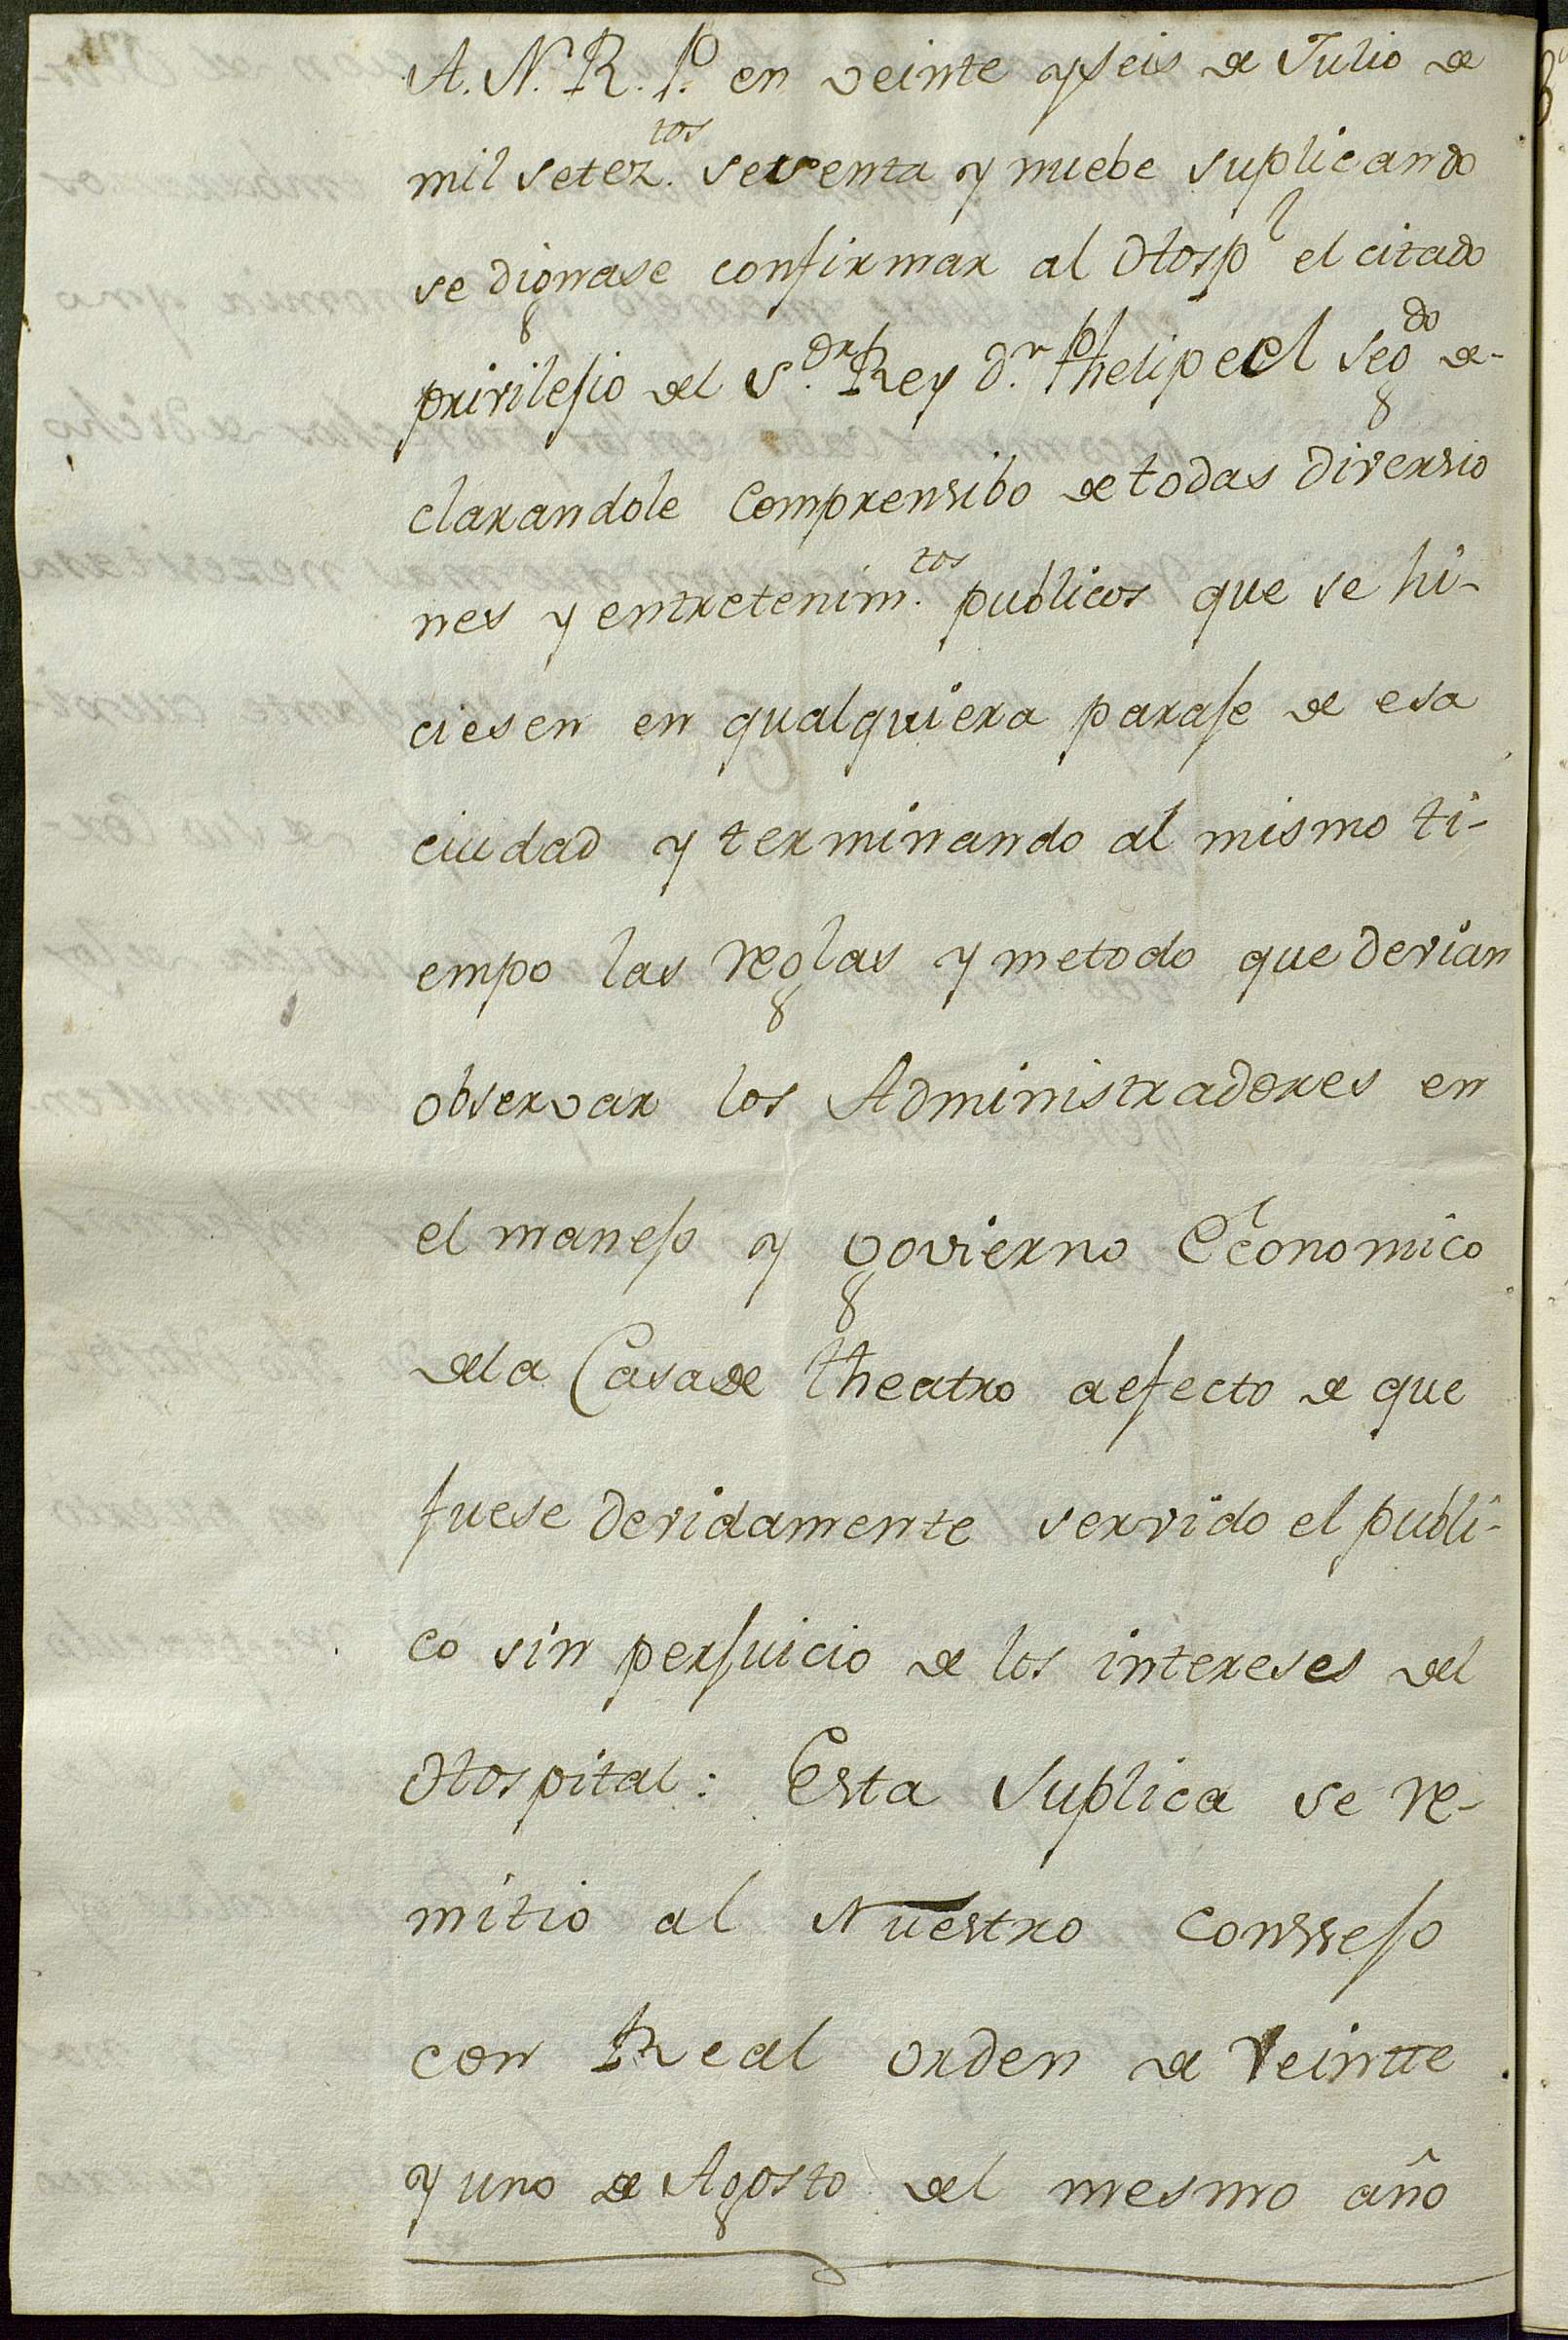 A. N. R. P. en veinte y seis de Julio de
mil setez.tos setenta y nuebe suplicando
se dignase confirmar al Hospl el citado
privilejio del S.or Rey d.n Phelipe el segdo de-
clarandole Comprensibo de todas diversio
nes y entretenim.tos publicos que se hi-
ciesen en qualquiera paraje de esa
ciudad y terminando al mismo ti-
empo las reglas y metodo que devian
observar los Administradores en
el manejo y govierno Economico
dela Casa de theatro a efecto de que
fuese devidamente servido el publi-
co sin perjuicio de los intereses del
Hospital: Esta suplica se re-
mitio al Nuestro Conssejo
con Real orden de Veintte
y uno de Agosto del mesmo año